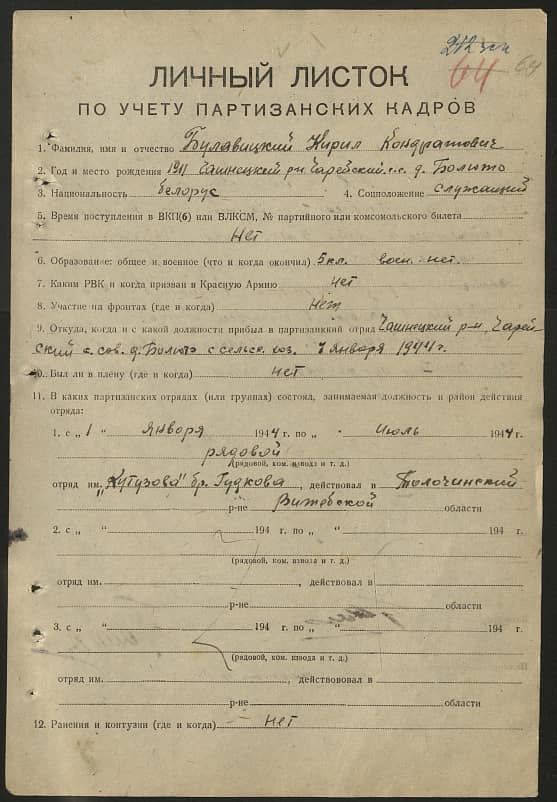 64 64
ЛИЧНЫЙ ЛИСТОК
ПО УЧЕТУ ПАРТИЗАНСКИХ КАДРОВ
1. Фамилия, имя и отчество Булавицкий Кирил Кондратович
2. Год и место рождения 1911 Чашнецкий р-н Чарейский с.с. д. Болюто
3. Национальность белорус 4. Соцположение служащий
5. Время поступления в ВКП(б) или ВЛКСМ, № партийного или комсомольского билета
Нет
6. Образование: общее и военное (что и когда окончил) 5 кл. воен. нет.
7. Каким РВК и когда призван в Красную Армию нет
8. Участие на фронтах (где и когда) Нет
9. Откуда, когда и с какой должности прибыл в партизанкий отряд Чашнецкий р-н, Чарей-
ский с. сов. д. Болюто с сельск. хоз. 1 января 1944 г.
10. Был ли в плену (где и когда) нет
11. В каких партизанских отрядах (или группах) состоял, занимаемая должность и район действия
отряда:
1. с „ 1 “ Января 1944 г. по „ “ Июль 1944 г.
рядовой
(рядовой, ком. взвода и т. д.)
отряд им. „Кутузова“ бр. Гудкова, действовал в Толочинский
р-не Витебской области
2. с „ “ 194 г. по „ “ 194 г.
(рядовой, ком. взвода и т. д.)
отряд им. , действовал в
р-не области
3. с „ “ 194 г. по „ “ 194 г.
(рядовой, ком. взвода и т. д.)
отряд им. , действововал в
р-не области
12. Ранения и контузии (где и когда) – нет